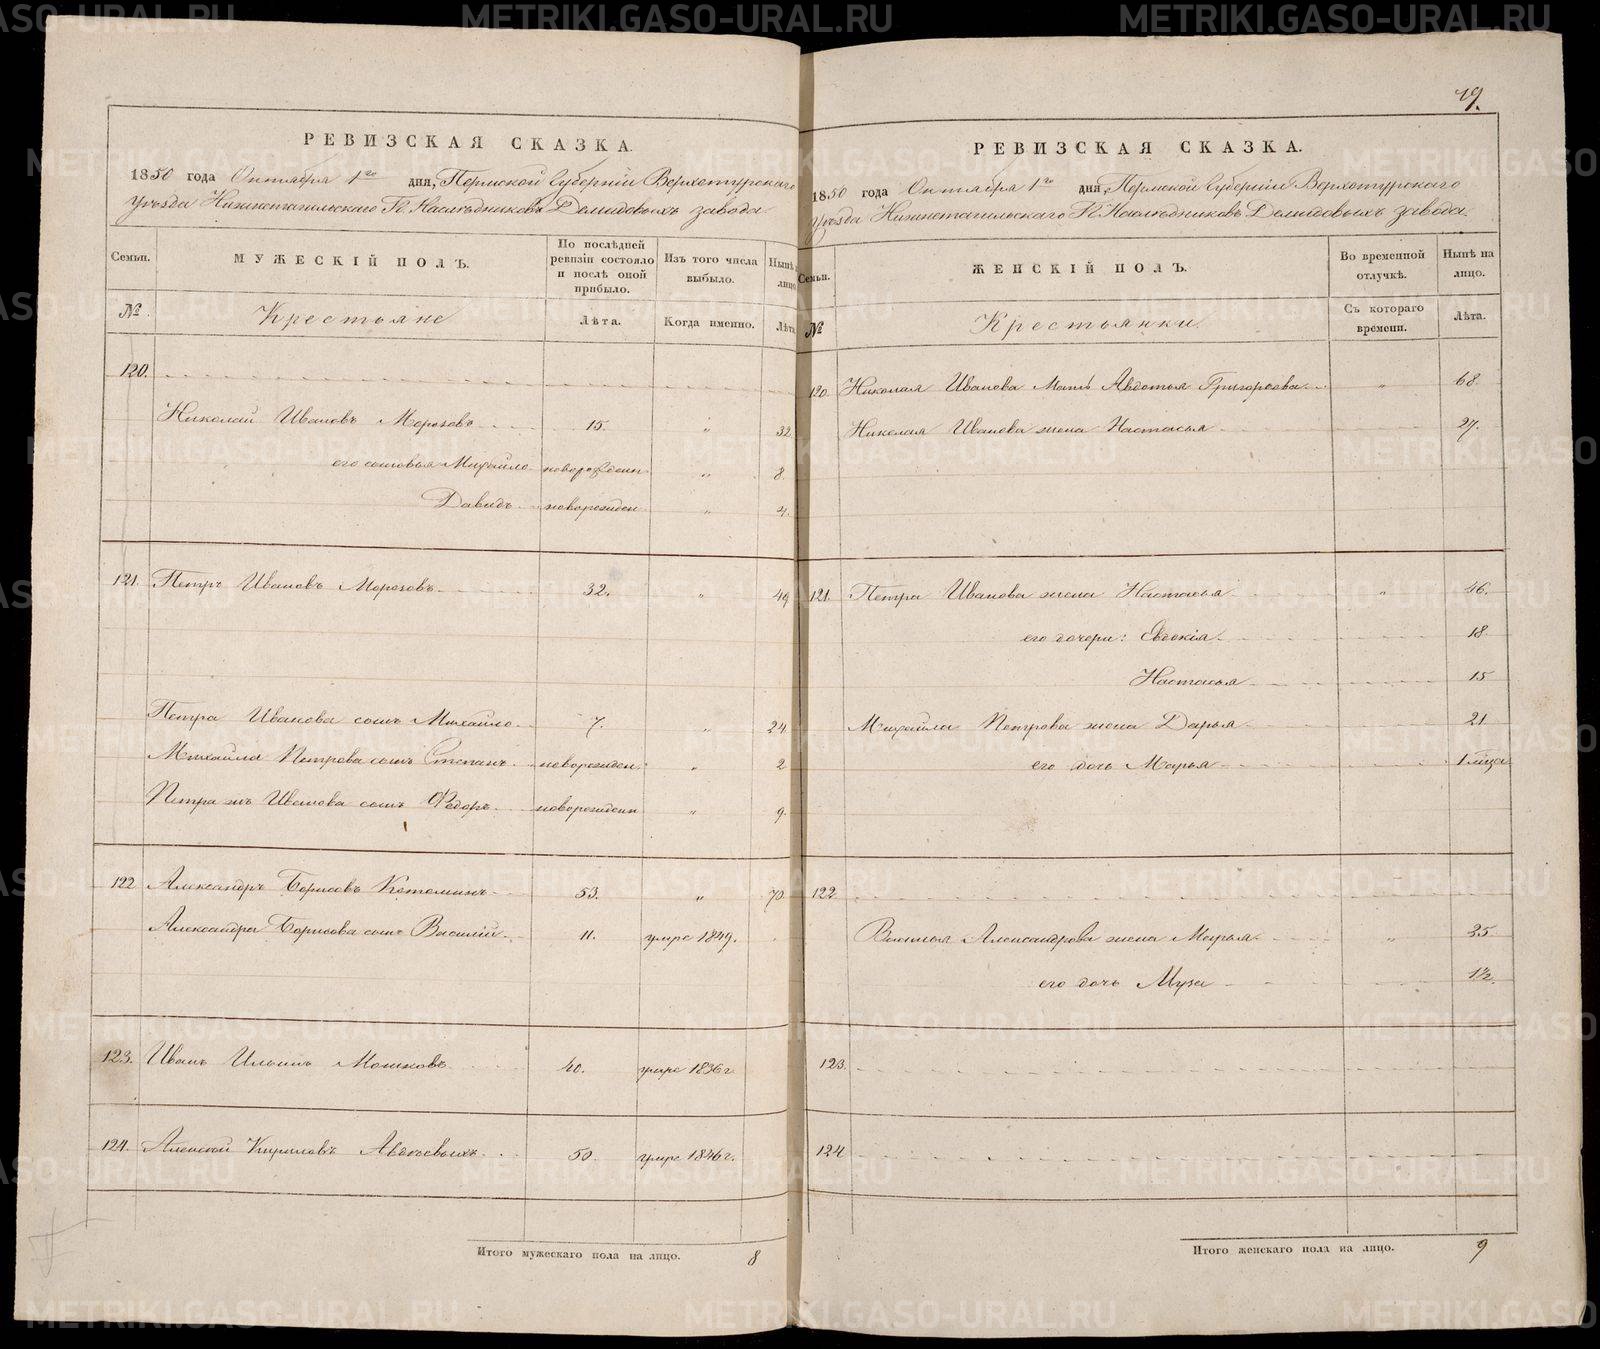 79.
РЕВИЗСКАЯ СКАЗКА.
1850 года Октября 1го дня, Пермской Губерніи Верхотурскаго
Уѣзда Нижнетагильскаго Гг. Наслѣдниковъ Демидовыхъ завода
Семьи. МУЖЕСКІЙ ПОЛЪ. По послѣдней ревизіи состояло и послѣ оной прибыло. Изъ того числа выбыло. Нынѣ на лицо.
№ Крестьяне Лѣта. Когда именно. Лѣта.
120.
Николай Ивановъ Морозовъ 15. " 32
его сыновья Михайло новорожден " 8.
Давидъ новорожден " 4.
121. Петръ Ивановъ Морозовъ 32. " 49
Петра Иванова сынъ Михайло 7. " 24
Михайла Петрова сынъ Степанъ новорожден " 2
Петра жъ Иванова сынъ Ѳедоръ новорожден " 9.
122 Александръ Борисовъ Котоминъ 53. " 70
Александра Борисова сынъ Василій 11. умре 1849.
123. Иванъ Ильинъ Мошковъ 40. умре 1836 г
124. Алексей Кириловъ Авдѣевыхъ 50. умре 1846 г.
Итого мужескаго пола на лицо. 8
РЕВИЗСКАЯ СКАЗКА.
1850 года Октября 1го дня, Пермской Губерніи Верхотурскаго
Уѣзда Нижнетагильскаго Гг. Наслѣдниковъ Демидовыхъ завода.
Семьи. ЖЕНСКІЙ ПОЛЪ. Во временной отлучкѣ. Нынѣ на лицо.
№ Крестьянки. Съ котораго времени. Лѣта.
120. Николая Иванова Мать Авдотья Григорьева " 68.
Николая Иванова жена Настасья 27.
121. Петра Иванова жена Настасья " 46.
его дочери: Евдокія 18.
Настасья 15
Михайла Петрова жена Дарья 21
его дочь Марья 1 мѣсяц
122
Василья Александрова жена Марья " 25
его дочь Муза 1½
123.
124
Итого женскаго пола на лицо. 9
METRIKI.GASO-URAL.RU